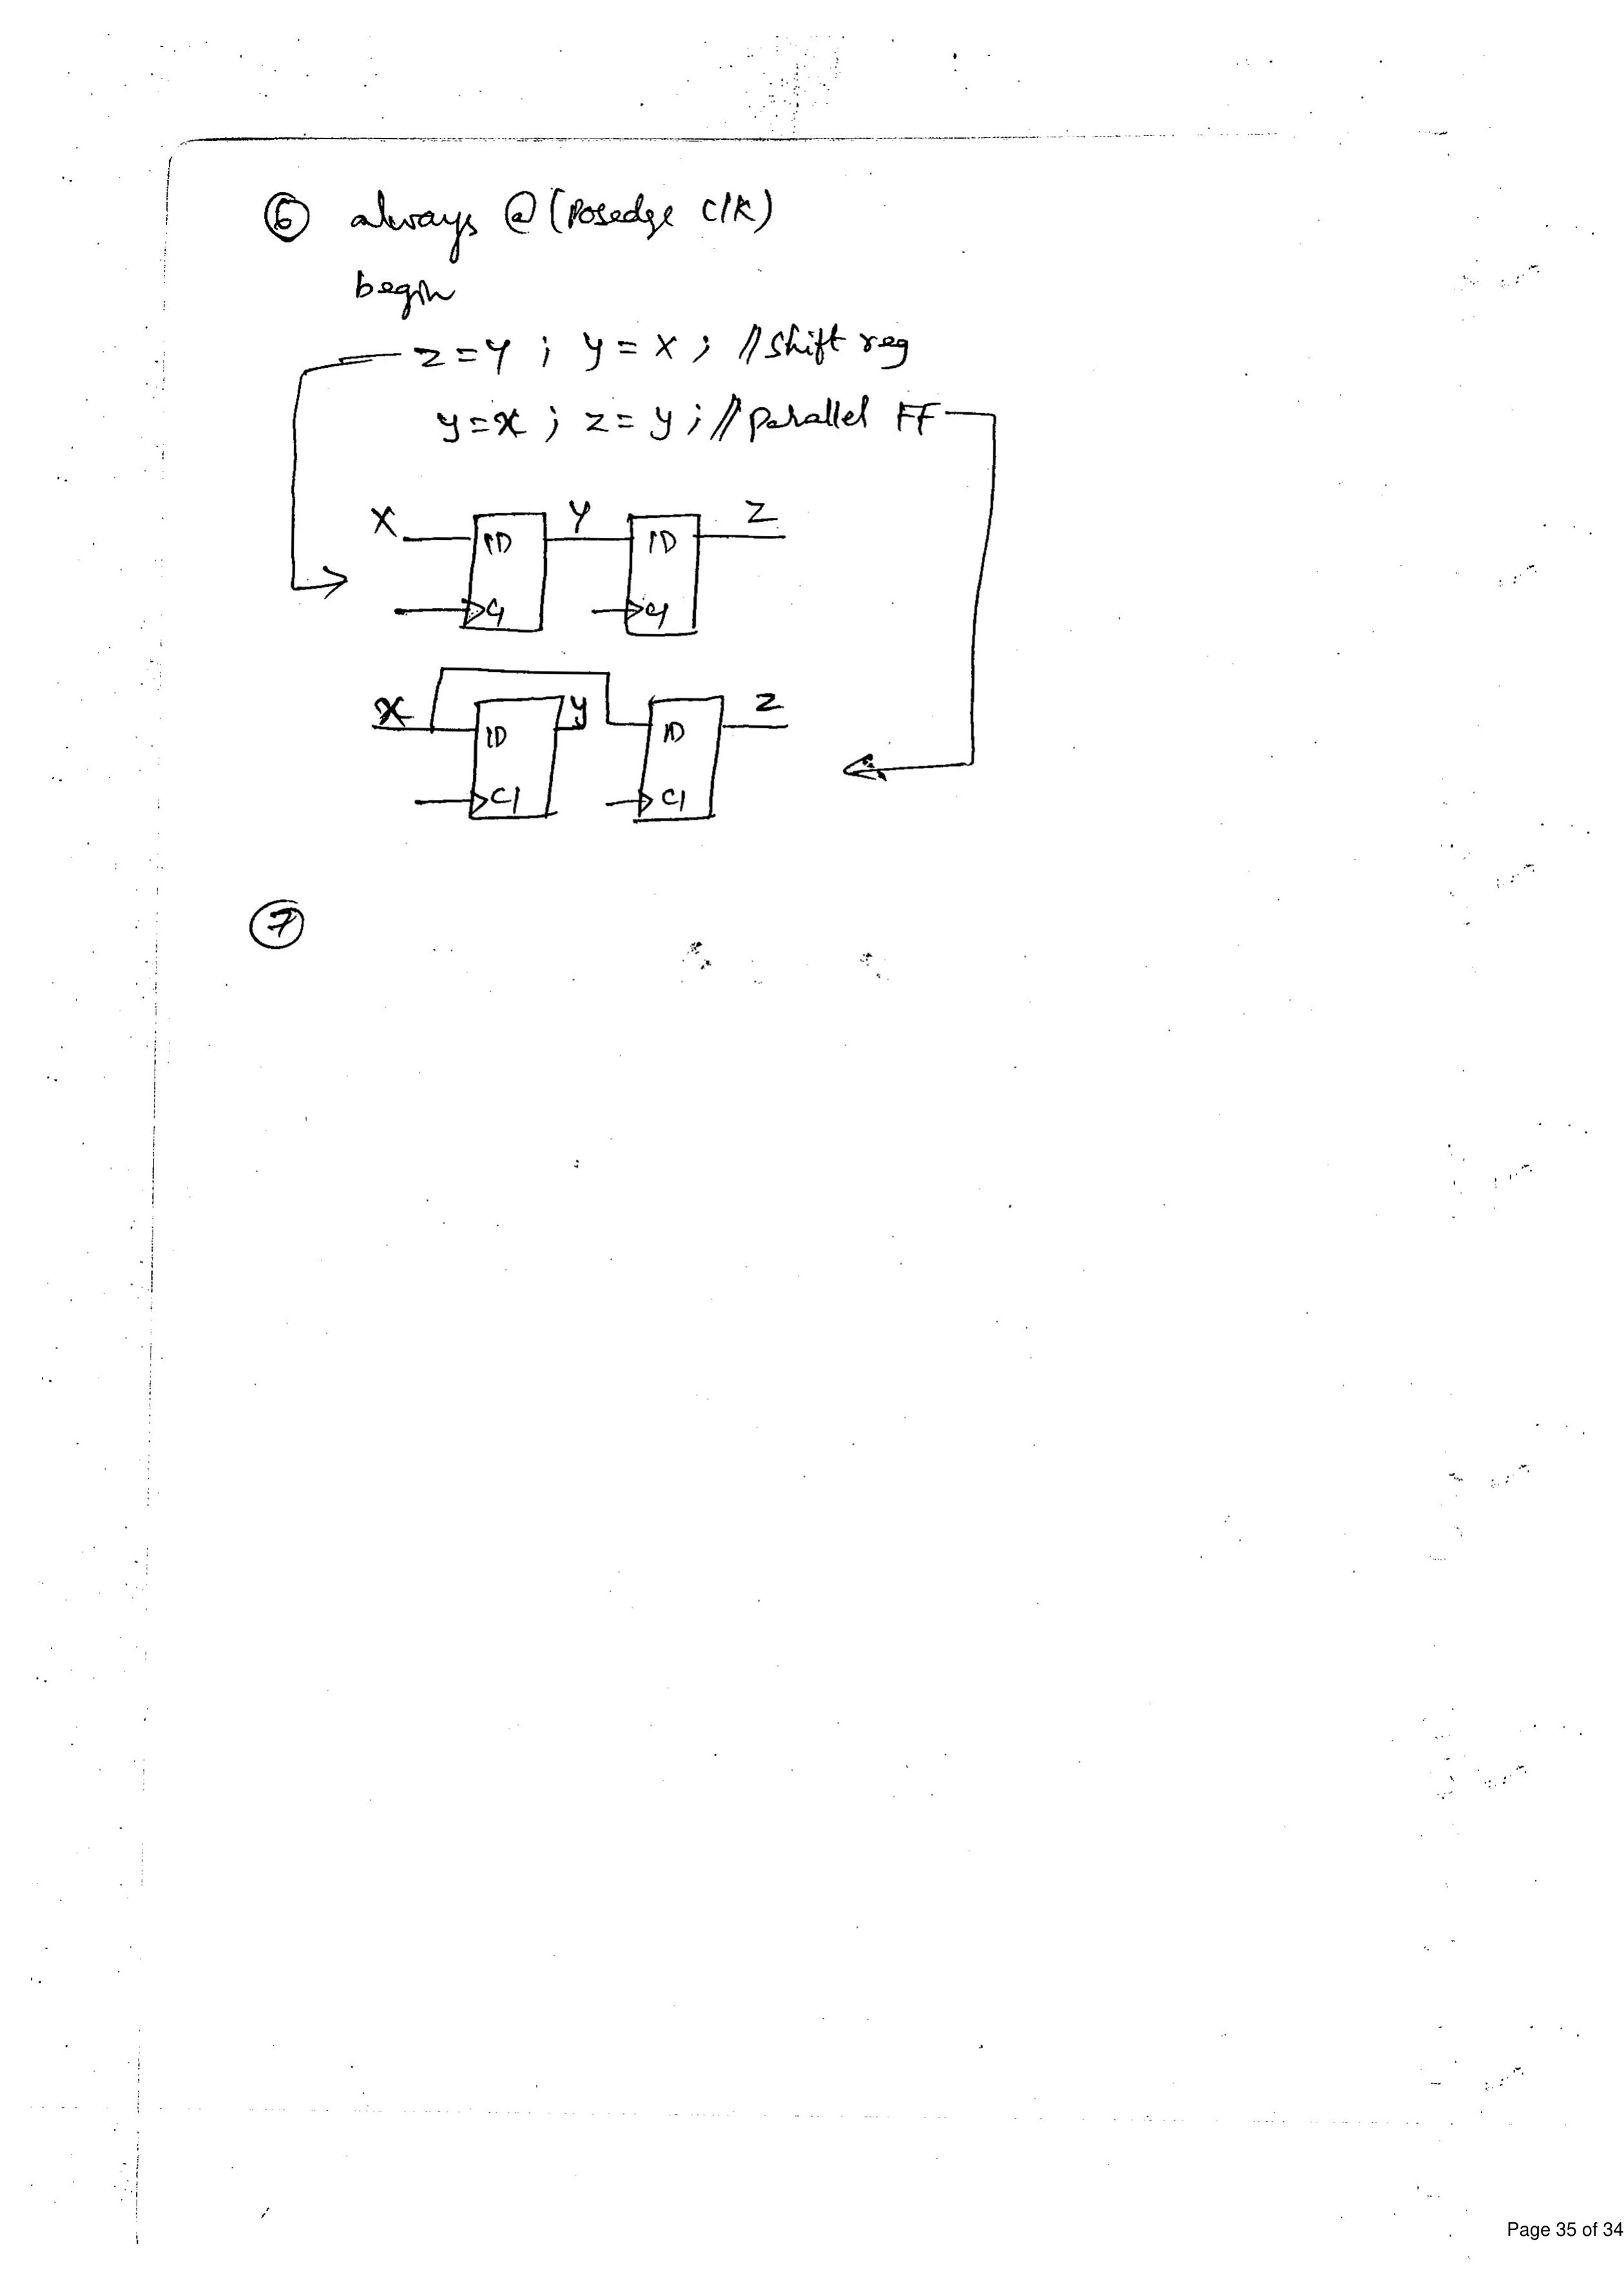 ⑥ always @ (posedge clk)
begin
z = y ; y = x ; // shift reg
y = x ; z = y ; // parallel FF
X 1D C1 Y 1D C1 Z
x 1D C1 y 1D C1 z
⑦
Page 35 of 34